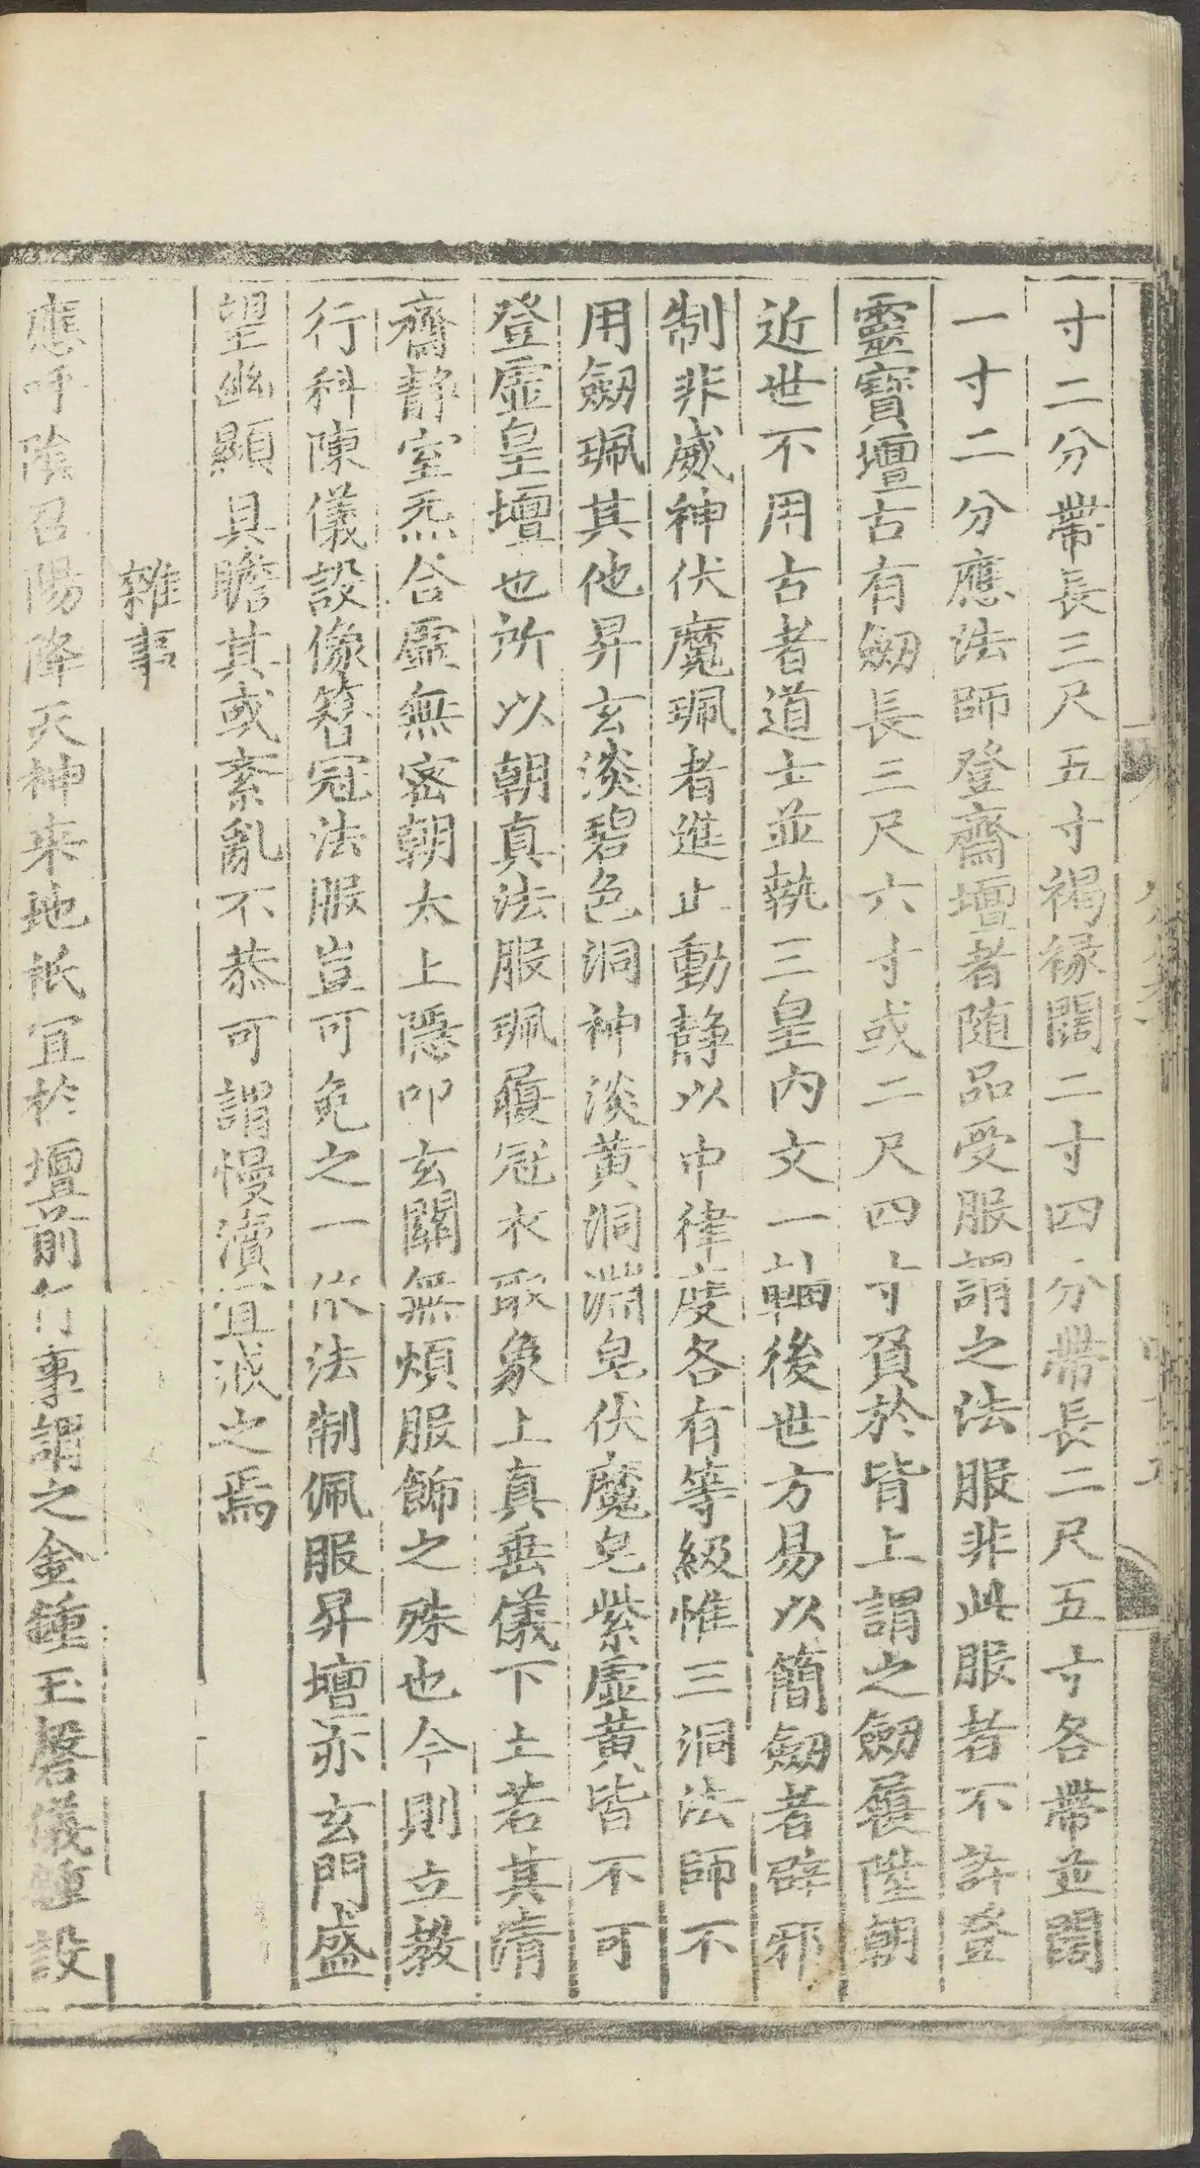 寸二分帶長三尺五寸褐緣闊二寸四分帶長二尺五寸各帶並闊
一寸二分應法師登齋壇者随品受服謂之法服非此服者不許登
靈寶壇古有劒長三尺六寸或二尺四寸負於背上謂之劒履陞朝
近世不用古者道士並執三皇內文一軸後世方易以簡劒者辟邪
制非威神伏魔珮者進止動靜以中律度各有等級惟三洞法師不
用劒珮其他昇玄淡碧色洞神淡黃洞淵皂伏魔皂紫虛黃皆不可
登虛皇壇也所以朝真法服珮履冠衣取象上真垂儀下土若其清
齋靜室炁合虛無密朝太上隱叩玄關無煩服飾之殊也今則立教
行科陳儀設像簪冠法服豈可免之一依法制佩服昇壇亦玄門盛
望幽顯具瞻其或紊亂不恭可謂慢瀆宜誡之焉
雜事
應呼陰召陽降天神来地祇宜於壇前行事謂之金鍾玉磬儀鍾設